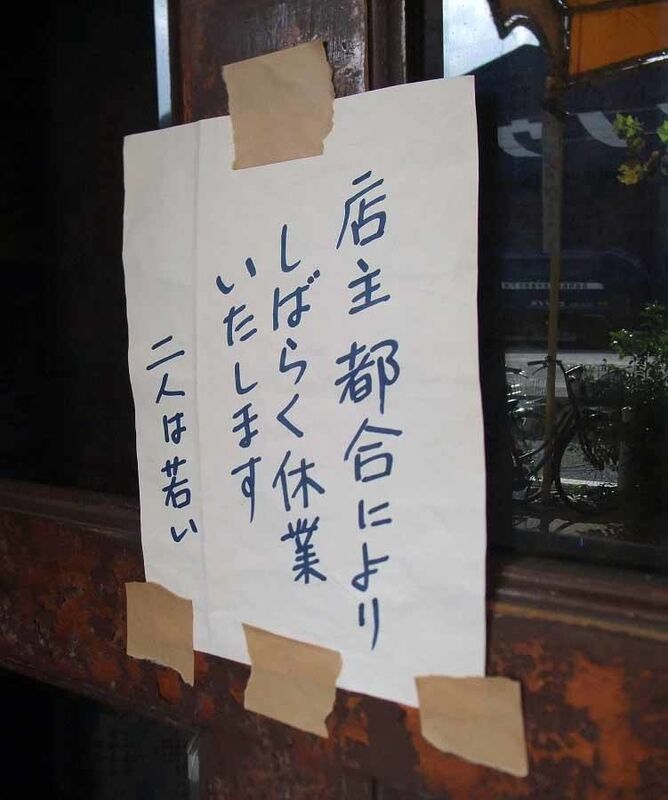 店主都合により
しばらく休業
いたします
二人は若い